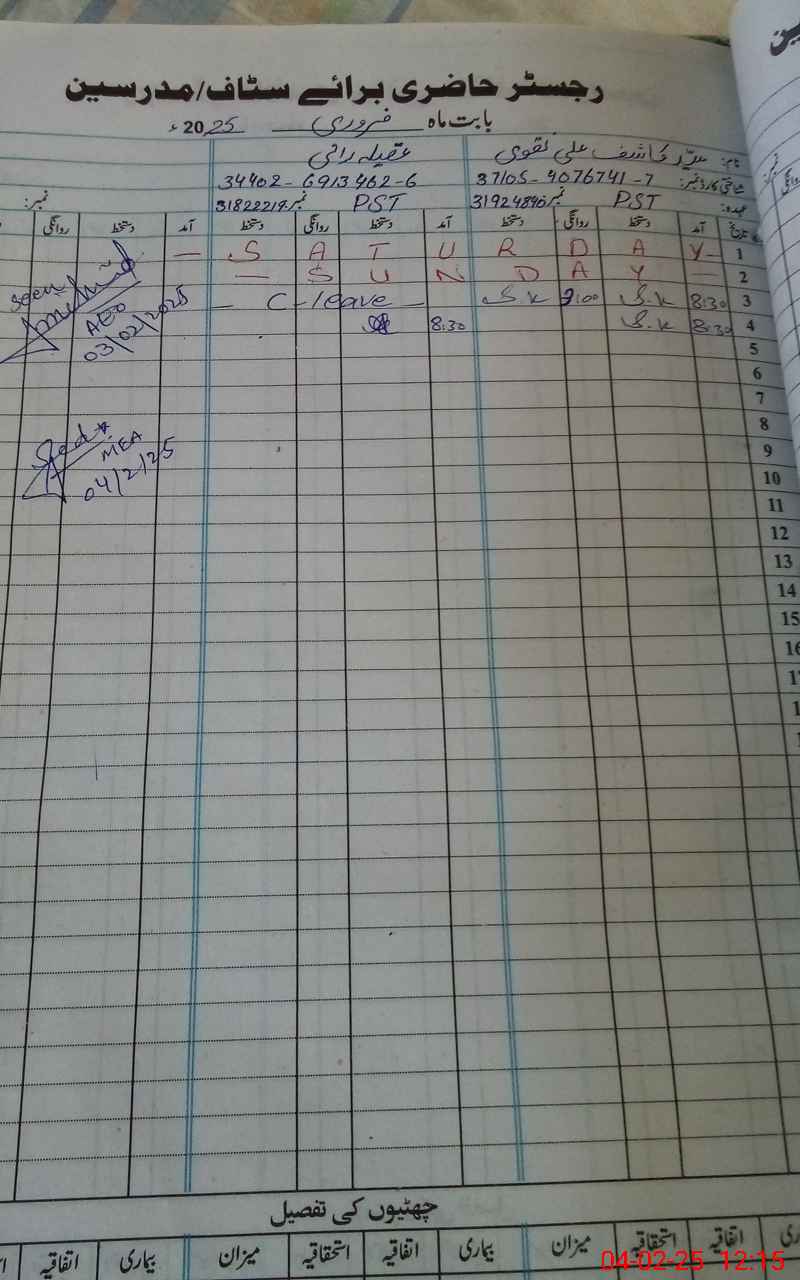 رجسٹر حاضری برائے سٹاف/مدرسین
بابت ماہ فروری 2025ء
نام: سید کاشف علی نقوی عقیلہ رانی
شناختی کارڈ نمبر: 37105-4076741-7 34402-6913462-6
عہدہ: PST نمبر PST نمبر 31822219 نمبر:
تاریخ آمد دستخط روانگی دستخط آمد دستخط روانگی دستخط آمد دستخط روانگی
1 — S A T U R D A Y —
2 — S U N D A Y —
3 8:30 S.K S.K — C-leave —
4 8:30 S.K 8:30
5
6
7
8
9
10
11
12
13
14
15
16
seen
AEO
03/02/2025
MEA
04/2/25
چھٹیوں کی تفصیل
اتفاقیہ استحقاقیہ میزان بیماری اتفاقیہ استحقاقیہ میزان بیماری اتفاقیہ
04-02-25 12:15